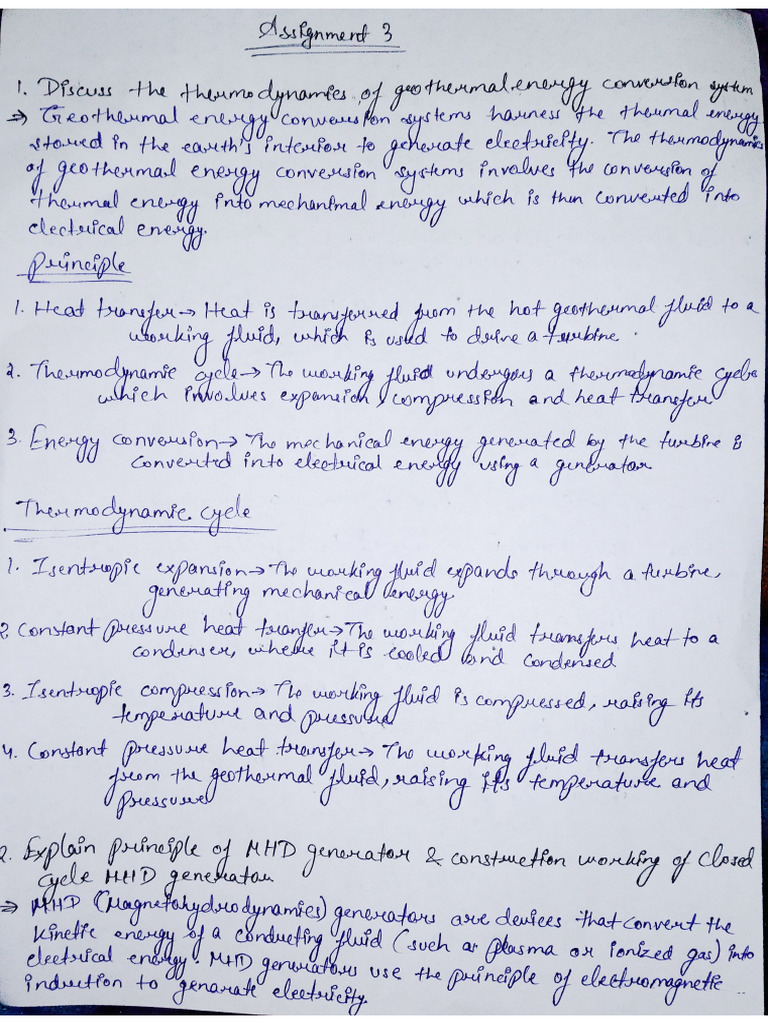 Assignment 3
1. Discuss the thermodynamics of geothermal energy conversion system
⇒ Geothermal energy conversion systems harness the thermal energy
stored in the earth's interior to generate electricity. The thermodynamics
of geothermal energy conversion systems involves the conversion of
thermal energy into mechanimal energy which is then converted into
electrical energy.
Principle
1. Heat transfer → Heat is transferred from the hot geothermal fluid to a
working fluid, which is used to drive a turbine.
2. Thermodynamic cycle → The working fluid undergoes a thermodynamic cycle
which involves expansion, compression and heat transfer
3. Energy conversion → The mechanical energy generated by the turbine is
converted into electrical energy using a generator
Thermodynamic cycle
1. Isentropic expansion → The working fluid expands through a turbine,
generating mechanical energy.
2. Constant pressure heat tranfer → The working fluid transfers heat to a
condenser, where it is cooled and condensed
3. Isentropic compression → The working fluid is compressed, raising its
temperature and pressure
4. Constant pressure heat transfer → The working fluid transfers heat
from the geothermal fluid, raising its temperature and
pressure
2. Explain principle of MHD generator & construction working of closed
cycle MHD generator
⇒ MHD (Magnetohydrodynamics) generators are devices that convert the
kinetic energy of a conducting fluid (such as plasma or ionized gas) into
electrical energy. MHD generators use the principle of electromagnetic
induction to genarate electricity.